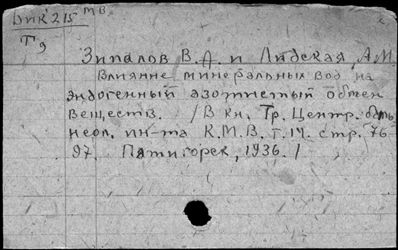 Бик 215 МВ
Т9
Зипалов В.А. и Лидская А.М.
Влияние минеральных вод на
эндогенный азотистый обмен
веществ. /В кн. Тр. Центр.
неол. ин-та К.М.В. т. 14. стр. 76-
97. Пятигорск, 1936. /